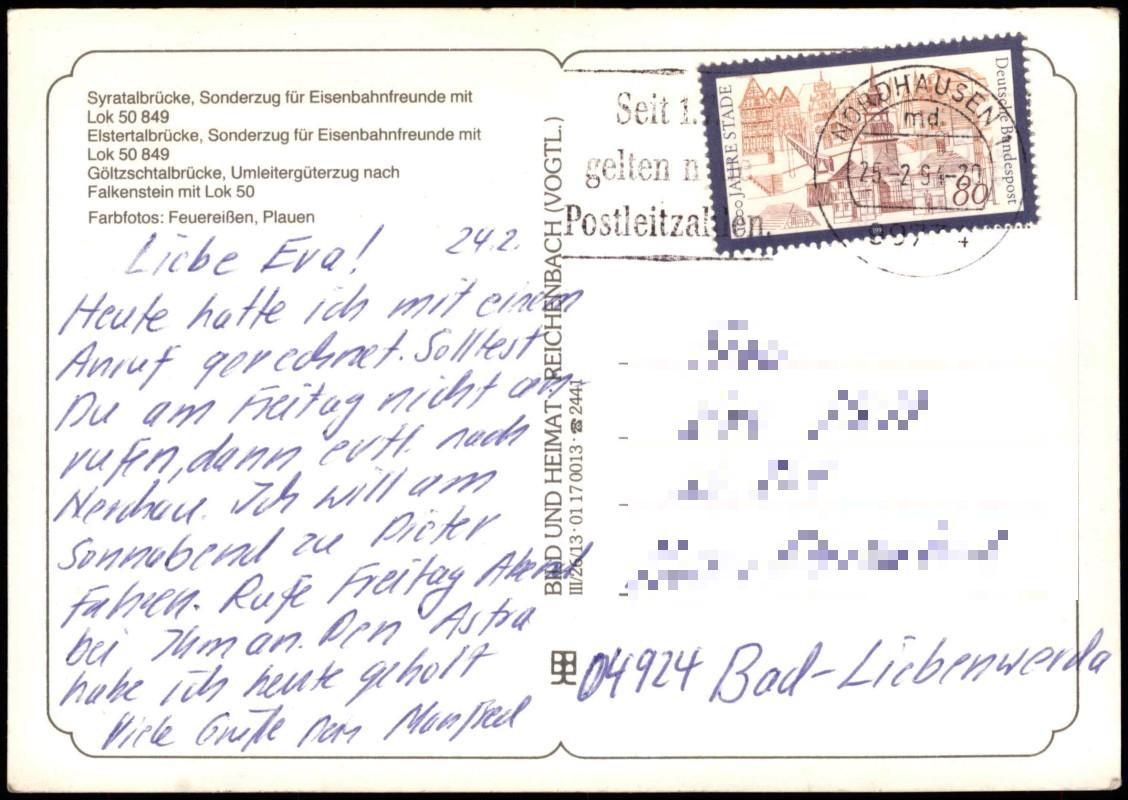 Syratalbrücke, Sonderzug für Eisenbahnfreunde mit
Lok 50 849
Elstertalbrücke, Sonderzug für Eisenbahnfreunde mit
Lok 50 849
Göltzschtalbrücke, Umleitergüterzug nach
Falkenstein mit Lok 50
Farbfotos: Feuereißen, Plauen
Liebe Eva! 24.2.
Heute hatte ich mit einem
Anruf gerechnet. Solltest
Du am Freitag nicht an-
rufen, dann evtl. nach
Ich will am
Sonnabend zu Dieter
fahren. Rufe Freitag Abend
bei Ihm an. Den Astra
habe ich heute geholt
Viele Grüße Dein Manfred
BILD UND HEIMAT · REICHENBACH (VOGTL.)
III/26/13 · 01 17 0013 · ☎ 2441
Seit 1.
gelten
Postleitzahlen.
JAHRE STADE
Deutsche Bundespost
80
NORDHAUSEN
md.
25.-2.94-20
04924 Bad-Liebenwerda